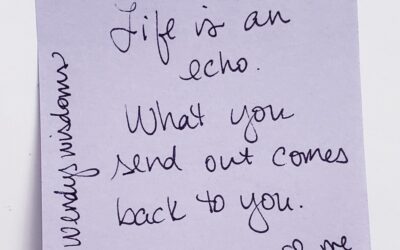 Life is an
echo.
What you
send out comes
back to you.
me
wendyswisdoms